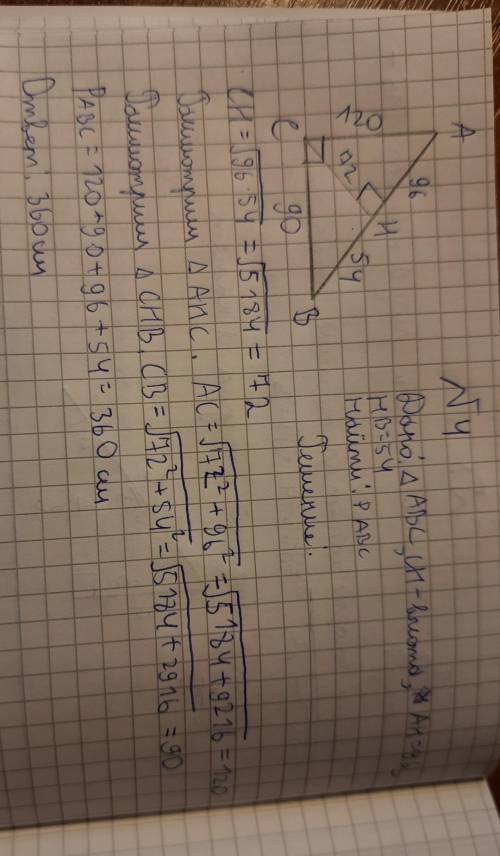 №4
Дано: △ABC, CH - высота, AH=96
HB=54
Найти: P ABC
Решение:
A
96
120
72
H
54
C
90
B
CH = √96·54 = √5184 = 72
Рассмотрим △ AHC, AC=√72²+96² = √5184+9216 = 120
Рассмотрим △ CHB, CB=√72²+54² = √5184+2916 = 90
PABC = 120+90+96+54 = 360 см
Ответ: 360 см